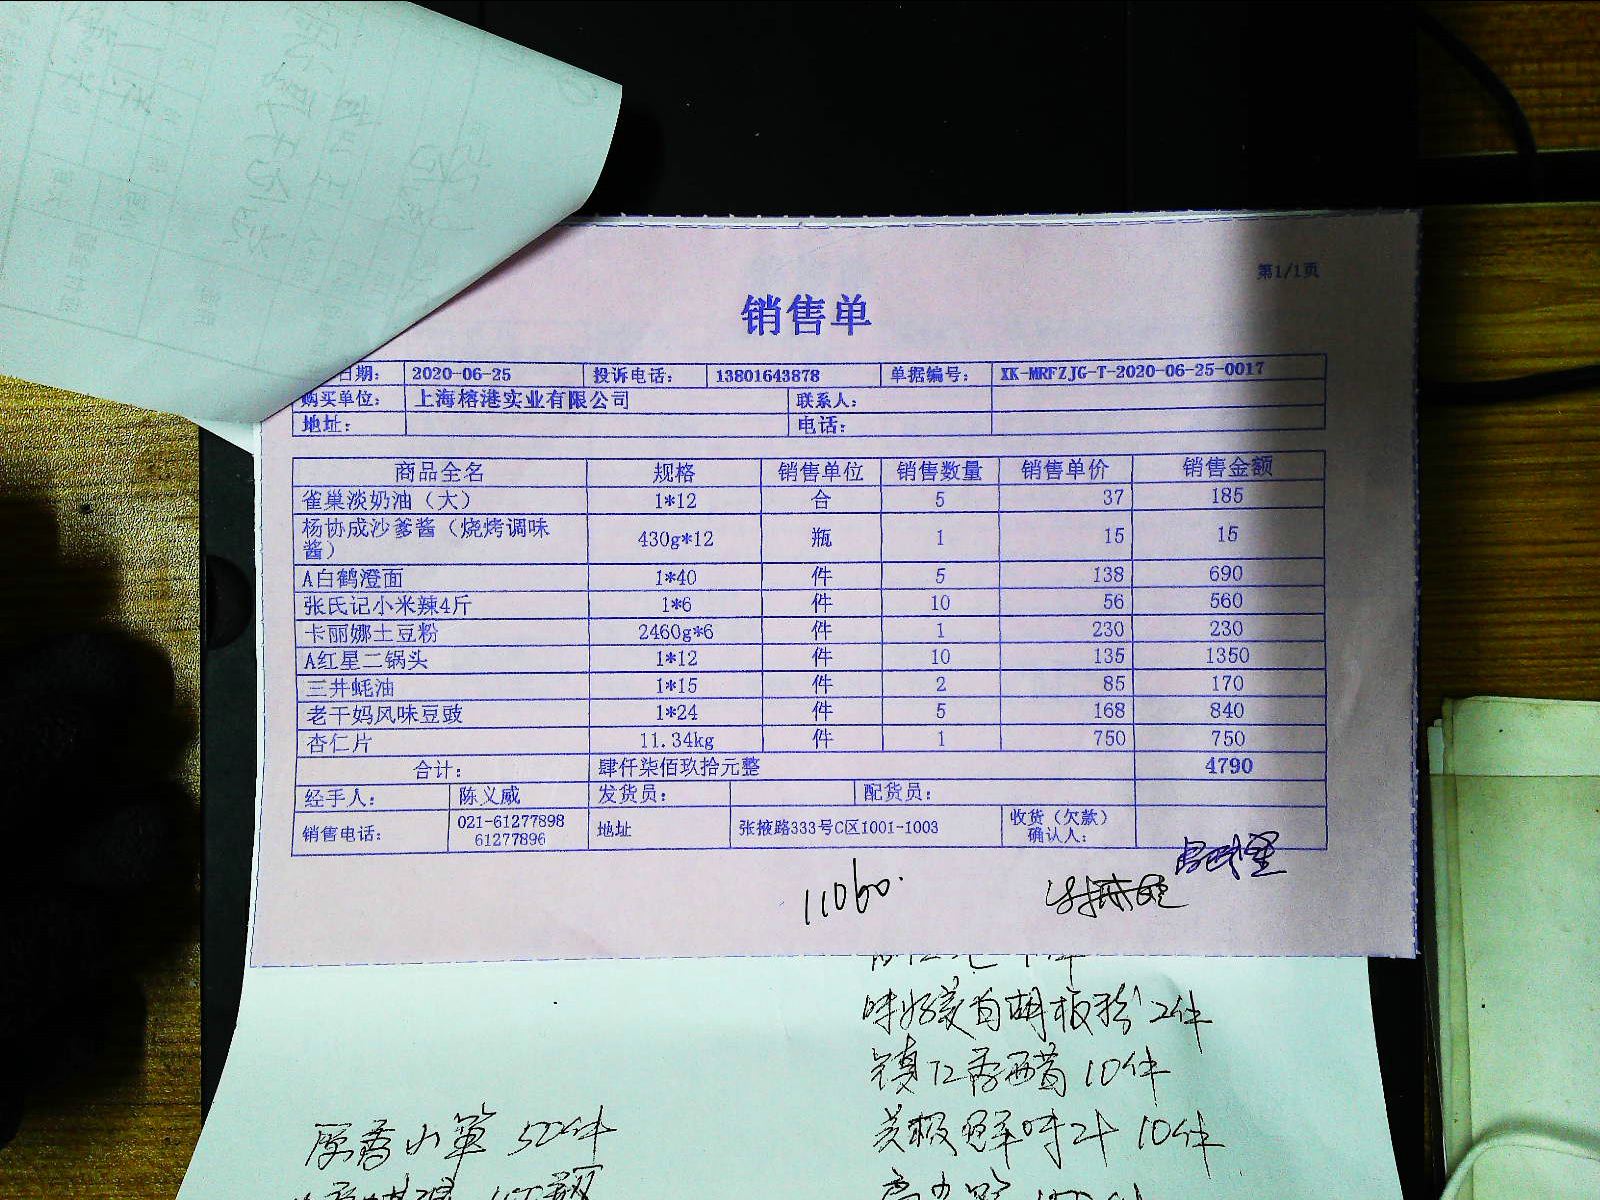 第1/1页
销售单
日期： 2020-06-25 投诉电话： 13801643878 单据编号： XK-MRFZJG-T-2020-06-25-0017
购买单位： 上海榕港实业有限公司 联系人：
地址： 电话：
商品全名 规格 销售单位 销售数量 销售单价 销售金额
雀巢淡奶油（大） 1*12 合 5 37 185
杨协成沙爹酱（烧烤调味
酱） 430g*12 瓶 1 15 15
A白鹤澄面 1*40 件 5 138 690
张氏记小米辣4斤 1*6 件 10 56 560
卡丽娜土豆粉 2460g*6 件 1 230 230
A红星二锅头 1*12 件 10 135 1350
三井蚝油 1*15 件 2 85 170
老干妈风味豆豉 1*24 件 5 168 840
杏仁片 11.34kg 件 1 750 750
合计： 肆仟柒佰玖拾元整 4790
经手人： 陈义威 发货员： 配货员：
销售电话： 021-61277898
61277896 地址 张掖路333号C区1001-1003 收货（欠款）
确认人：
11060.
味好美白胡椒粉 2件
镇江香醋 10件
美极鲜味汁 10件
原香小草 50件